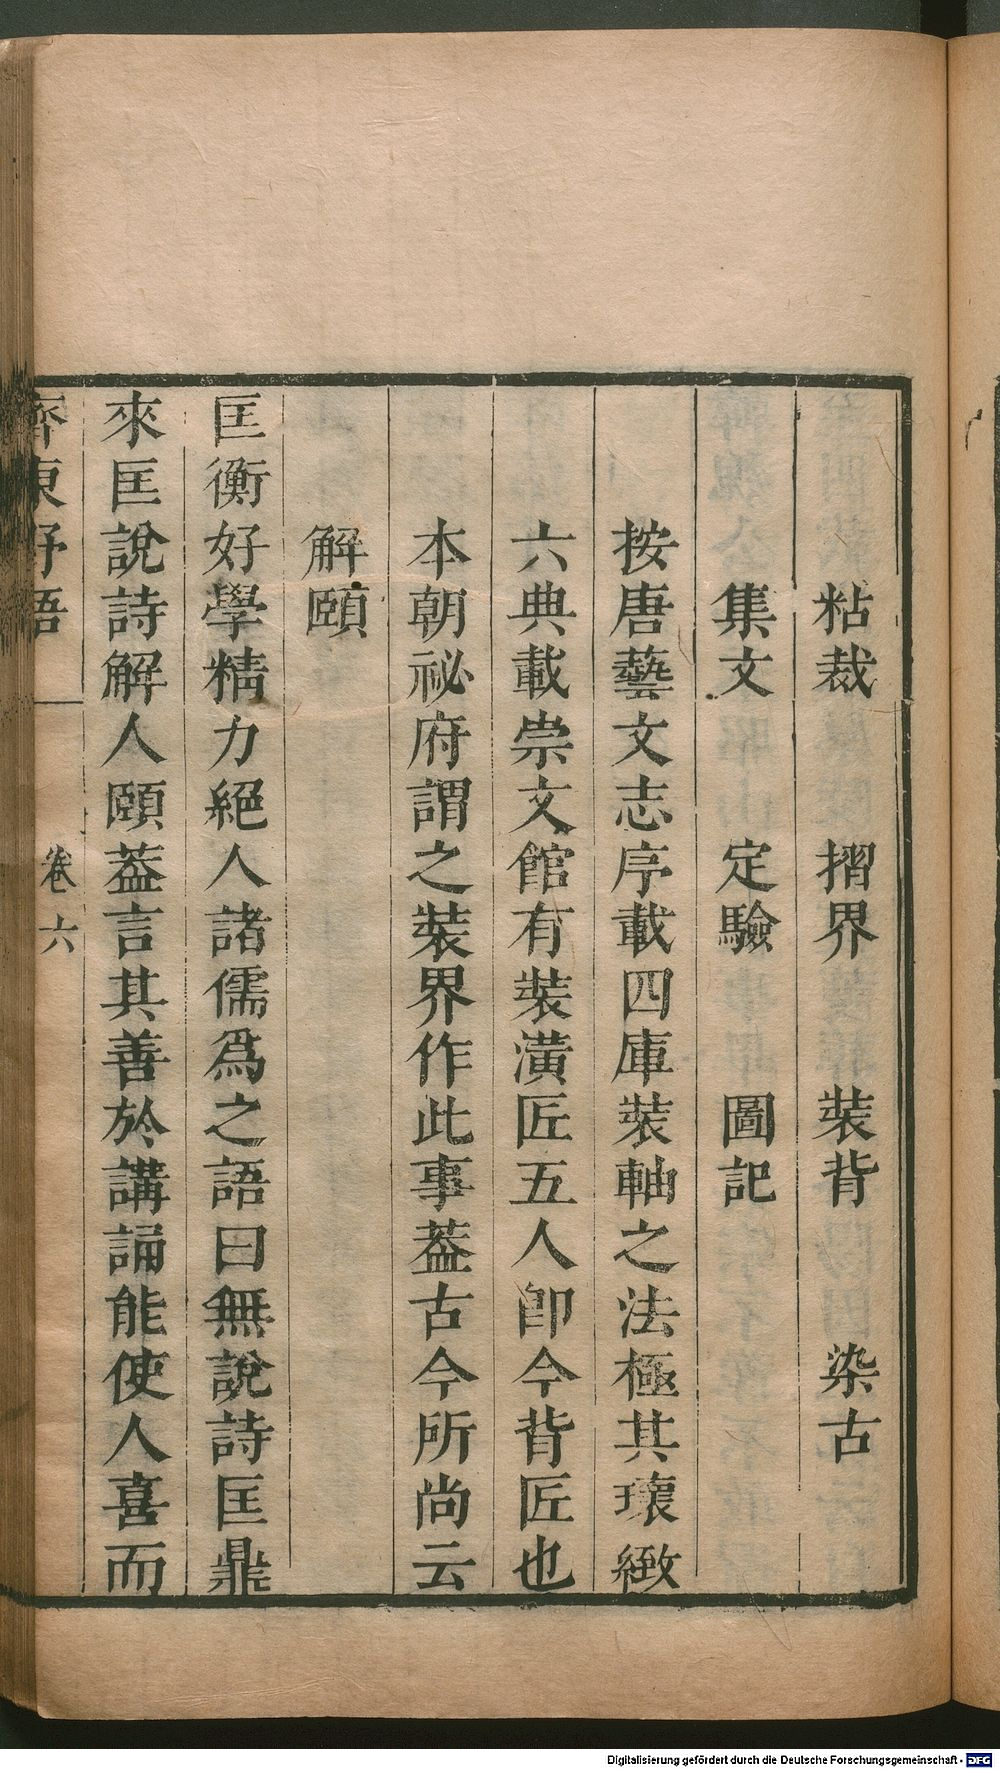 粘裁　摺界　裝背　染古
集文　定驗　圖記
按唐藝文志序載四庫裝軸之法極其瓌緻
六典載崇文館有裝潢匠五人卽今背匠也
本朝祕府謂之裝界作此事葢古今所尚云
解頤
匡衡好學精力絕人諸儒爲之語曰無說詩匡鼎
來匡說詩解人頤葢言其善於講誦能使人喜而
齊東野語　卷六
Digitalisierung gefördert durch die Deutsche Forschungsgemeinschaft - DFG